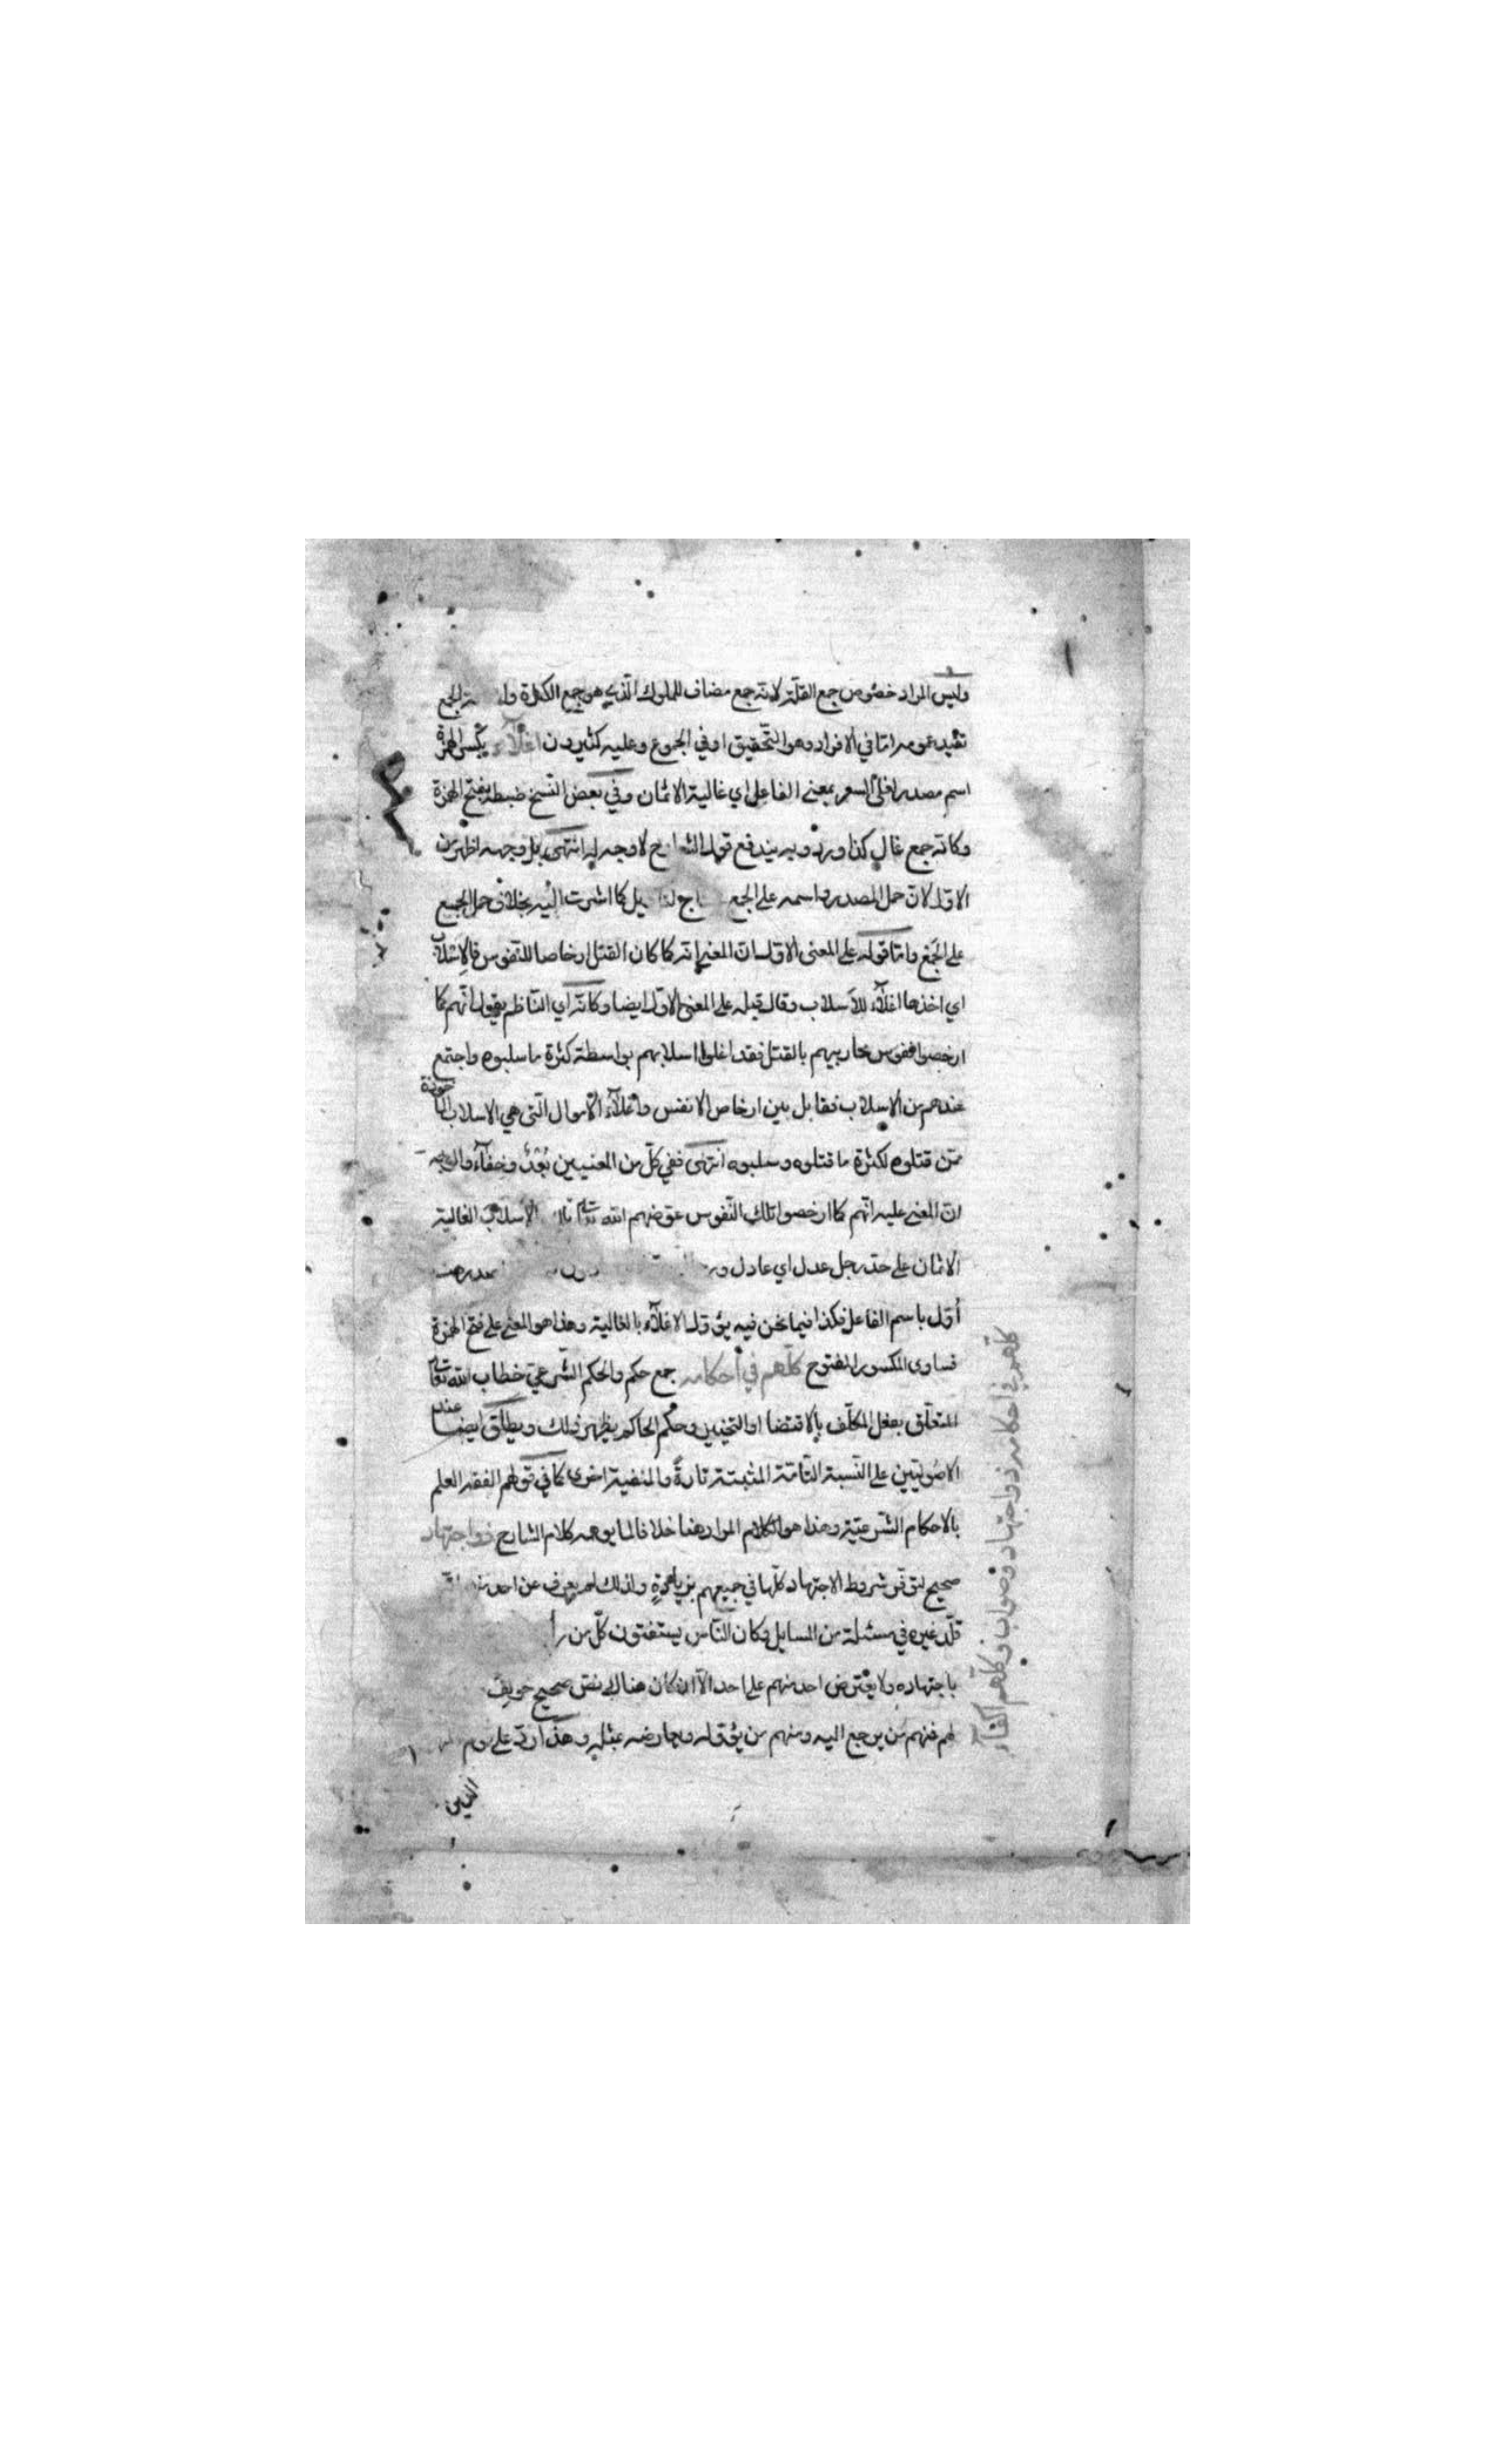 وليس المراد خصوص جمع القلة لانه جمع مضاف للملوك الذي هو جمع الكثرة الجمع
تفيد عمومه اما في الافراد وهو التحقيق او في الجموع وعليه كثيرون اغلآء بكسر الهمزة
اسم مصدر اغلى السعر بمعنى الفاعل اي غالية الاثمان وفي بعض النسخ ضبطه بفتح الهمزة
وكانه جمع غال كذا ورد وبه يندفع قول الشارح لا وجه له انتهى بل وجهه اظهر من
الاول لان حمل المصدر واسمه على الجمع كما اشرت اليه بخلاف حمل الجمع
على الجمع واما قوله على المعنى الاول ان المعنى انه كما كان القتل ارخاصا للنفوس فالاستلاب
اي اخذها اغلآء للاسلاب وقال قبله على المعنى الاول ايضا وكانه اي الناظم يقول انهم كما
ارخصوا نفوس محاربيهم بالقتل فقد اغلوا اسلابهم بواسطة كثرة ما سلبوه واجتمع
عندهم من الاسلاب فقابل بين ارخاص الانفس واغلآء الاموال التي هي الاسلاب المأخوذة
ممن قتلوه لكثرة ما قتلوه وسلبوه انتهى ففي كل من المعنيين بُعْدٌ وخفآء
ان المعنى عليه انهم كما ارخصوا تلك النفوس عوضهم الله تعالى الاسلاب الغالية
الاثمان على حد رجل عدل اي عادل
أوّل باسم الفاعل فكذا فيما نحن فيه يؤول الاغلآء بالغالية وهذا هو المعنى على فتح الهمزة
فساوى المكسور المفتوح كلّهم في أحكامه جمع حكم والحكم الشرعي خطاب الله تعالى
المتعلّق بفعل المكلّف بالاقتضا او التخيير وحكم الحاكم يظهر ذلك ويطلق ايضا عند
الاصوليّين على النسبة التامّة المثبتة تارةً والمنفية اخرى كما في قولهم الفقه العلم
بالاحكام الشرعيّة وهذا هو الكلام المراد هنا خلافا لما يوهمه كلام الشارح ذوا جتهاد
صحيح لتوفّر شروط الاجتهاد كلّها في جميعهم ولذلك لم يعرف عن احد
قلّد غيره في مسئلة من المسايل وكان الناس يستفتون كلّ من
باجتهاده ولا يعترض احد منهم على احد الّا ان كان هناك نصّ صحيح
لهم فمنهم من يرجع اليه ومنهم من يؤوله ويعارضه بمثله وهذا ردّ على
الذين
كلّهم في أحكامه ذو اجتهاد وصواب وكلّهم اكفآء